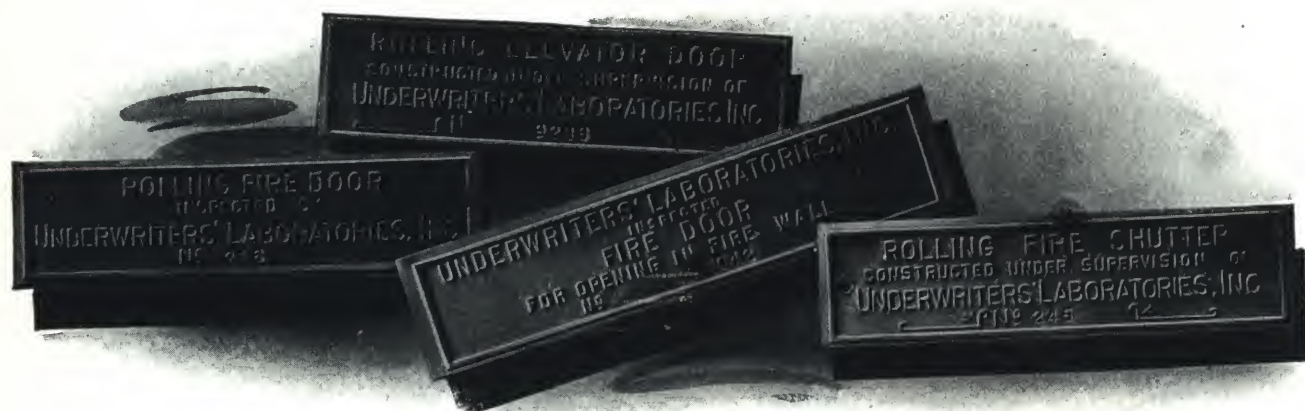 ROLLING ELEVATOR DOOR
CONSTRUCTED UNDER SUPERVISION OF
UNDERWRITERS' LABORATORIES, INC
ROLLING FIRE DOOR
INSPECTED
UNDERWRITERS' LABORATORIES, INC
No
UNDERWRITERS' LABORATORIES, INC.
INSPECTED
FIRE DOOR
FOR OPENING IN FIRE WALL
No
ROLLING FIRE SHUTTER
CONSTRUCTED UNDER SUPERVISION OF
UNDERWRITERS' LABORATORIES, INC
No 245